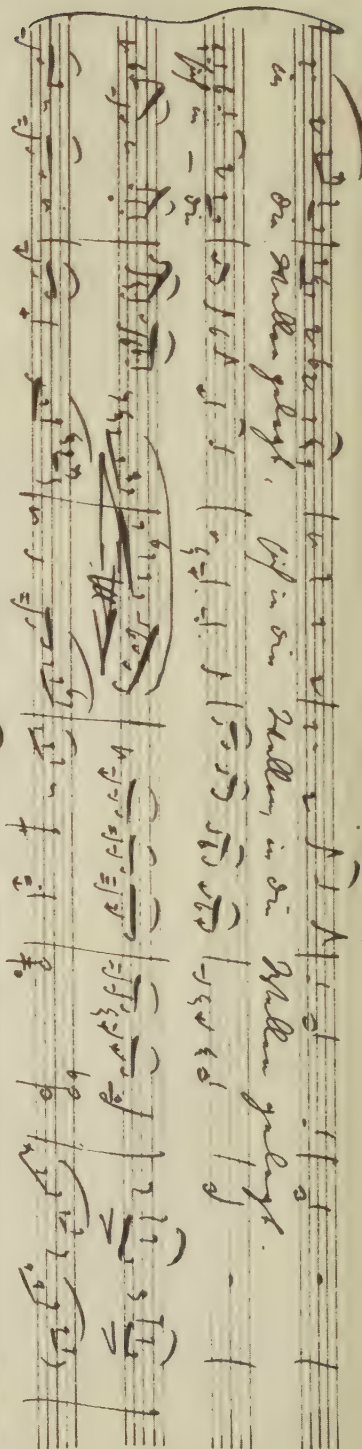 in die Wellen gelegt, sich in die Wellen, in die Wellen gelegt.
sich in – die